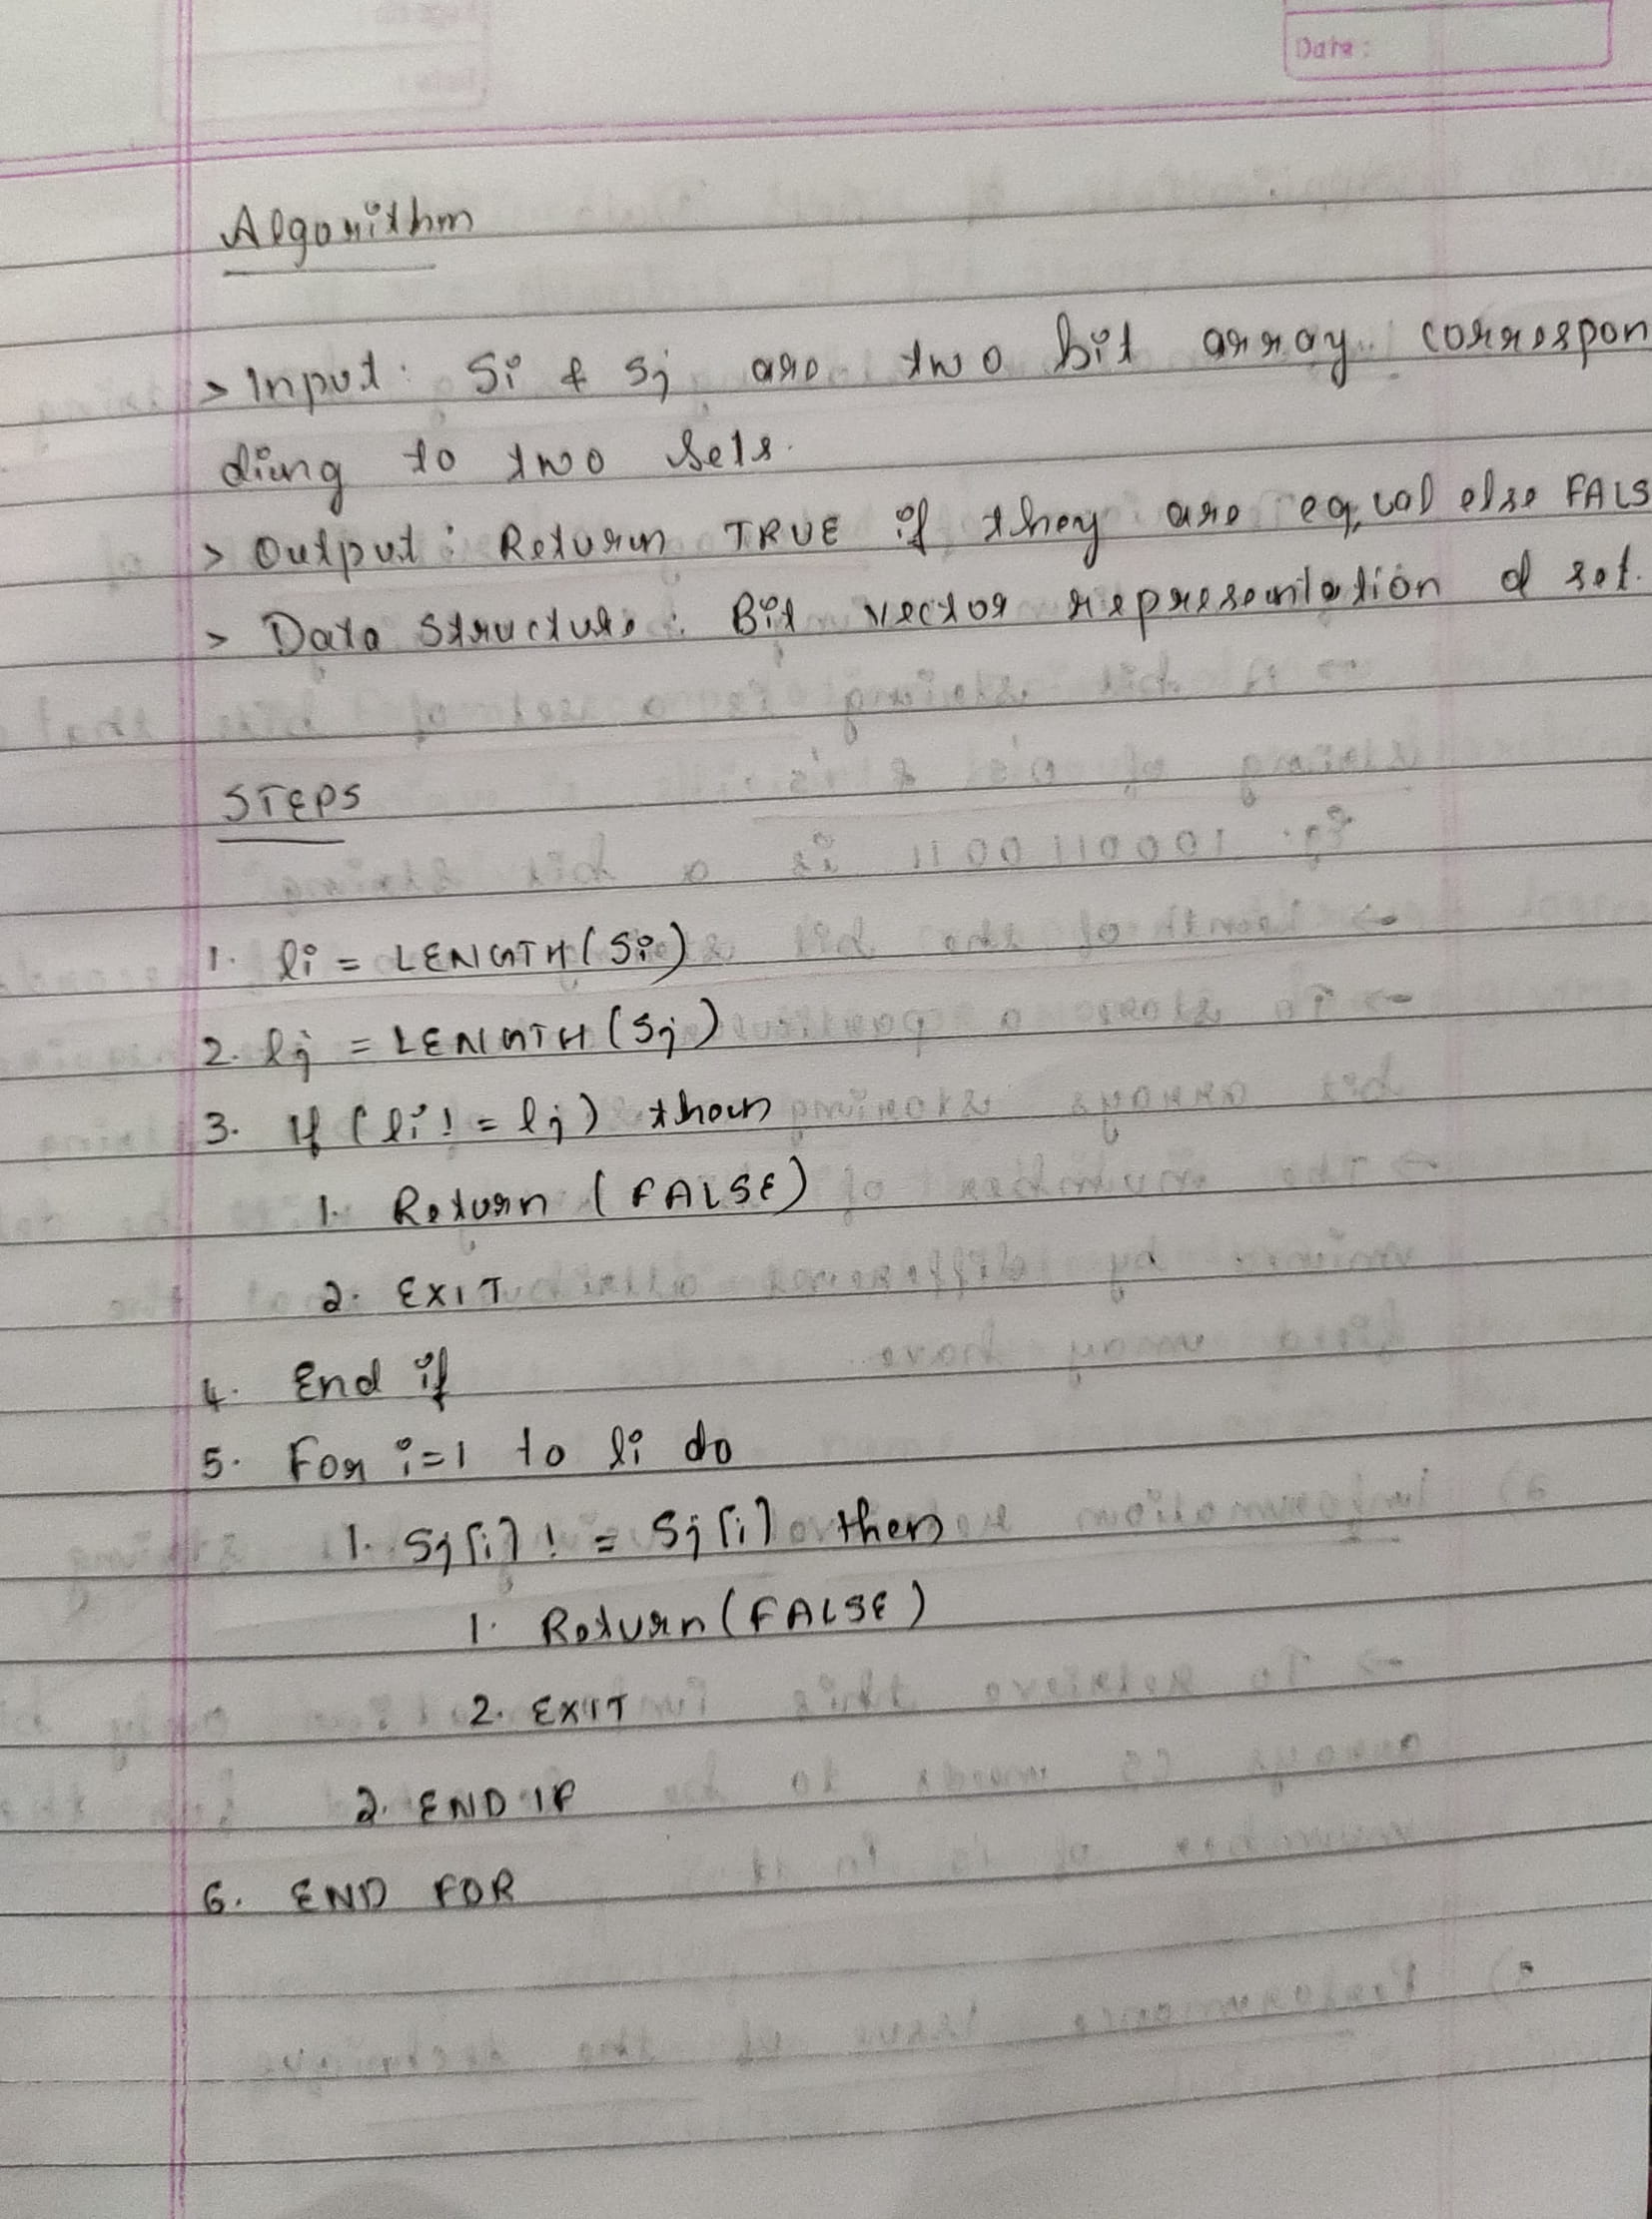 Date:
Algorithm
> Input: Si & Sj are two bit array correspon
ding to two sets.
> Output: Return TRUE if they are equal else FALS
> Data Structure: Bit vector representation of set.
STEPS
1. li = LENGTH(Si)
2. lj = LENGTH(Sj)
3. If (li != lj) then
1. Return (FALSE)
2. EXIT
4. End if
5. For i=1 to li do
1. Sj[i] != Sj[i] then
1. Return (FALSE)
2. EXIT
2. END IF
6. END FOR